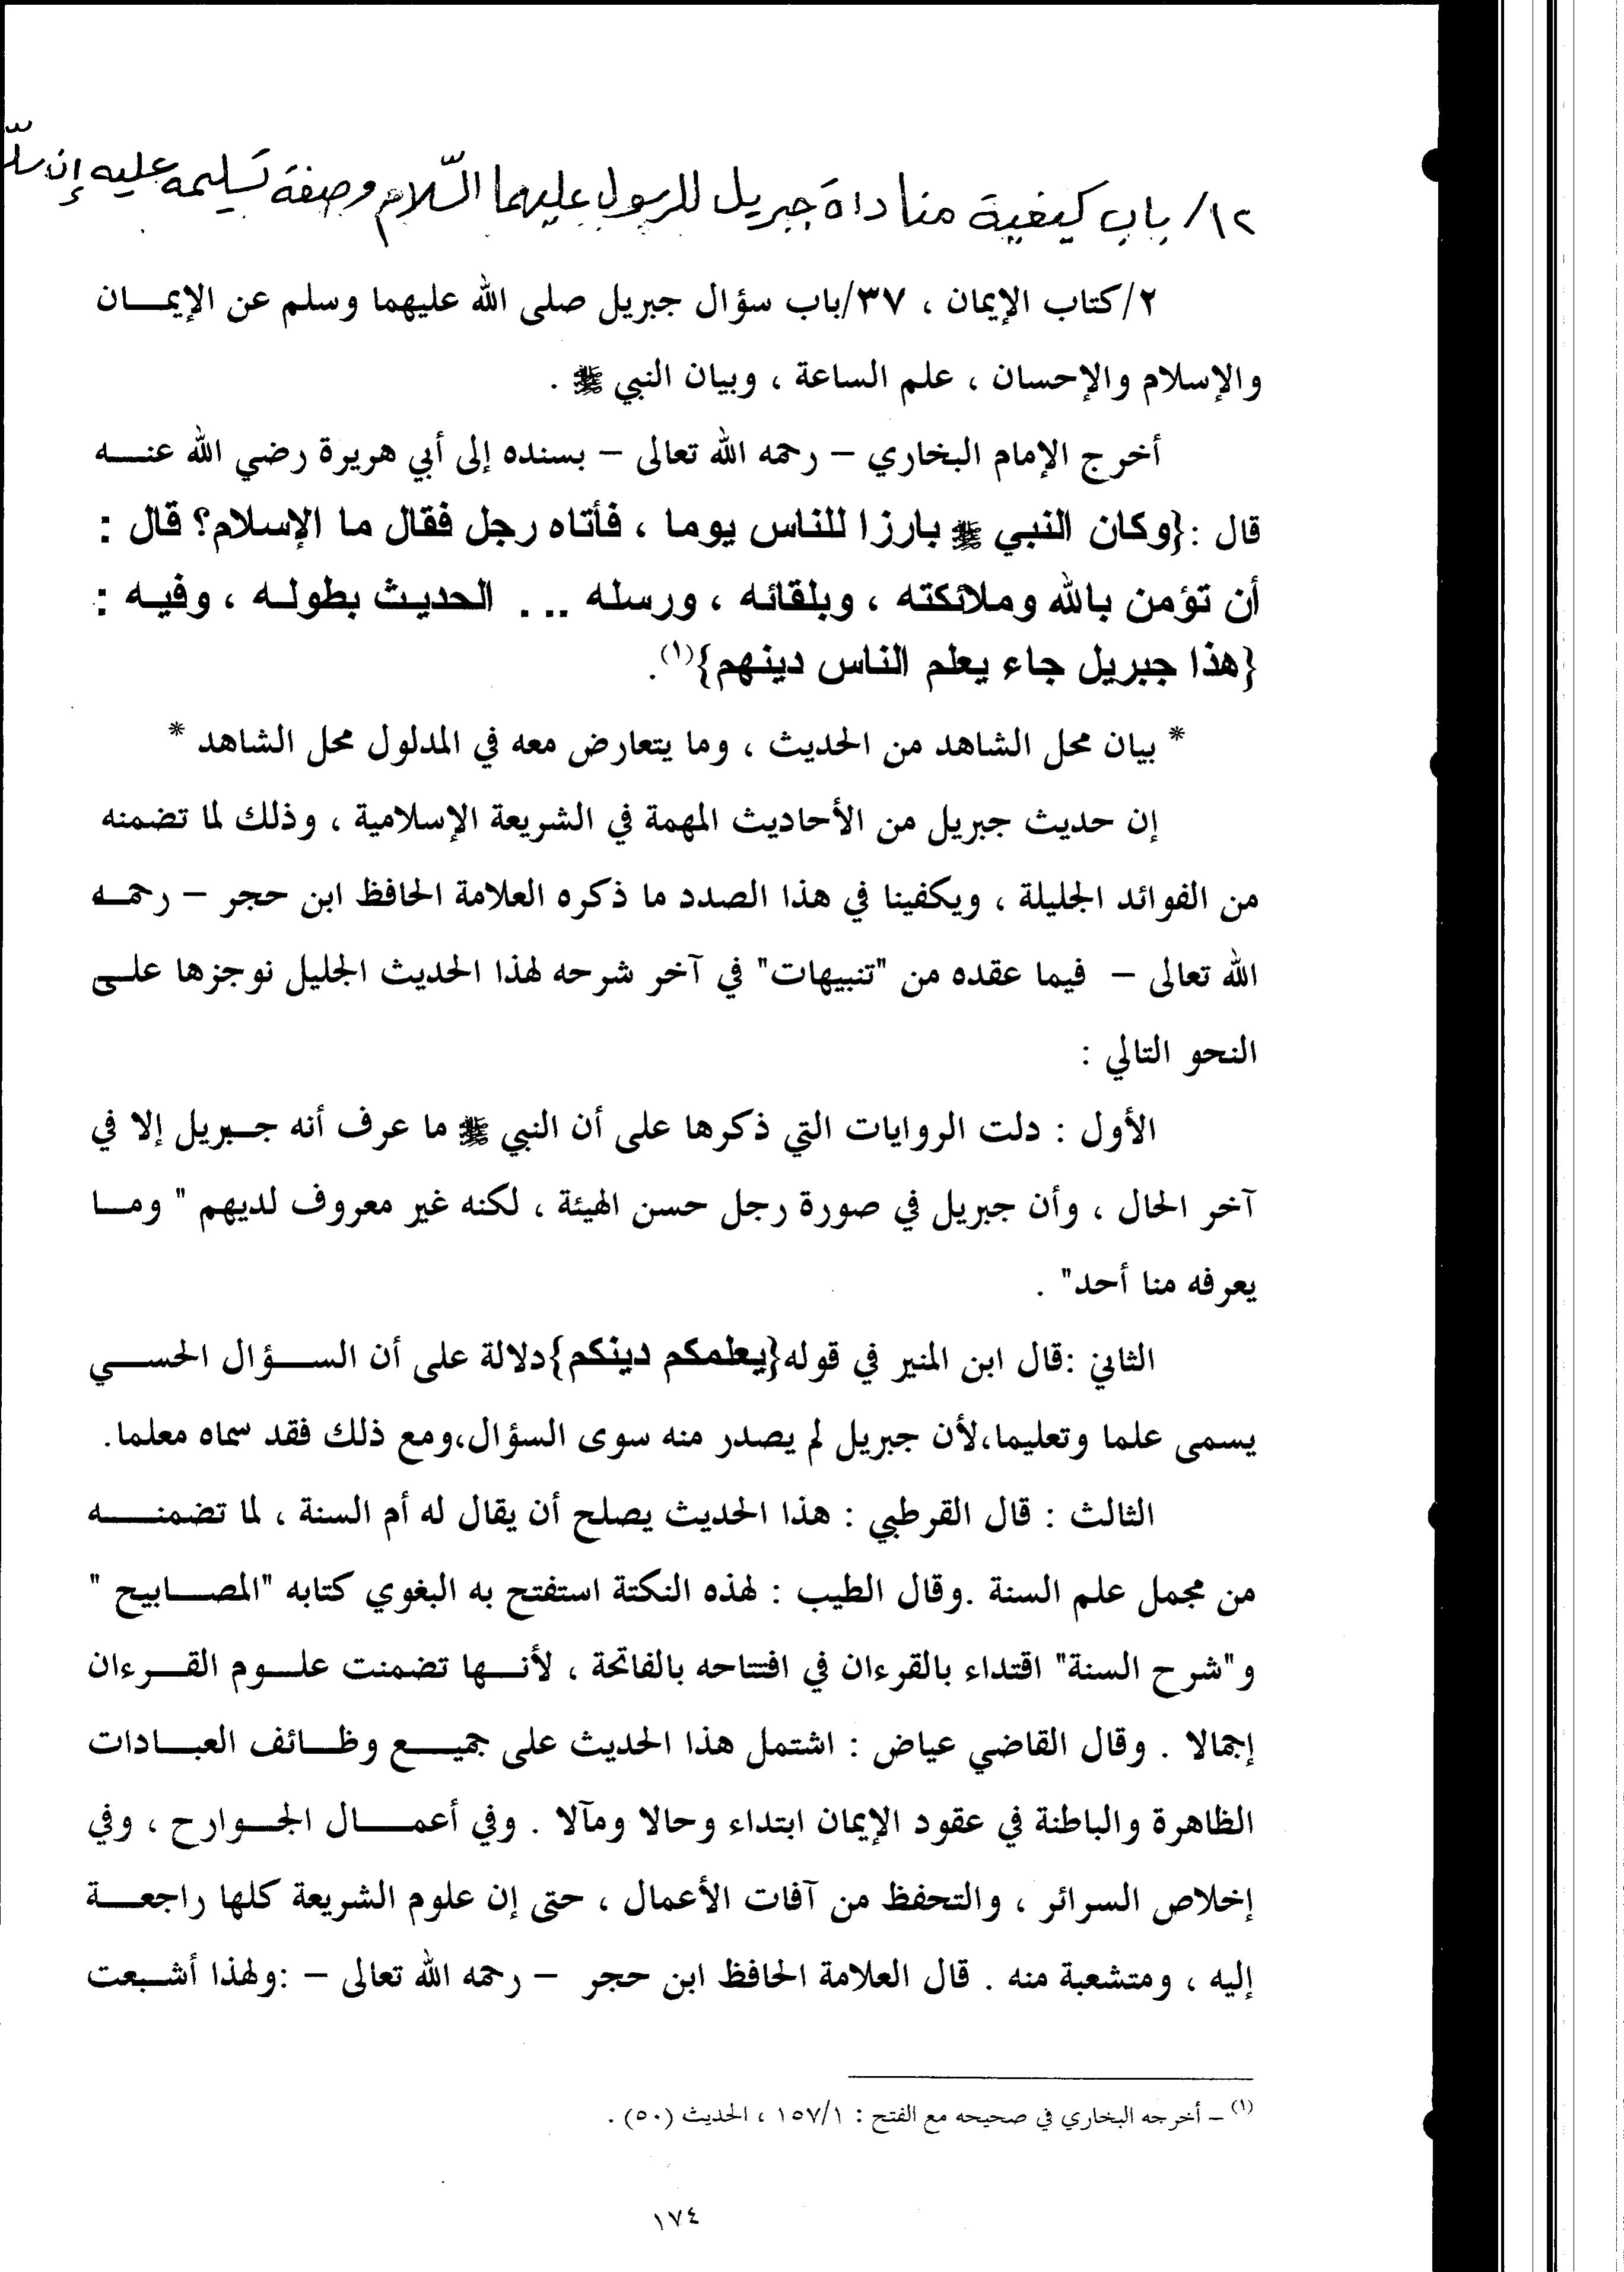 ١٢/ باب كيفية مناداة جبريل للرسول عليهما السّلام وصفة تسليمه عليه إن سلّم
٢/كتاب الإيمان ، ٣٧/باب سؤال جبريل صلى الله عليهما وسلم عن الإيمـــان
والإسلام والإحسان ، علم الساعة ، وبيان النبي ﷺ .
أخرج الإمام البخاري – رحمه الله تعالى – بسنده إلى أبي هريرة رضي الله عنـــه
قال :{وكان النبي ﷺ بارزا للناس يوما ، فأتاه رجل فقال ما الإسلام؟ قال :
أن تؤمن بالله وملائكته ، وبلقائه ، ورسله ... الحديث بطولـه ، وفيـه :
{هذا جبريل جاء يعلم الناس دينهم}(١).
* بيان محل الشاهد من الحديث ، وما يتعارض معه في المدلول محل الشاهد *
إن حديث جبريل من الأحاديث المهمة في الشريعة الإسلامية ، وذلك لما تضمنه
من الفوائد الجليلة ، ويكفينا في هذا الصدد ما ذكره العلامة الحافظ ابن حجر – رحمـه
الله تعالى – فيما عقده من "تنبيهات" في آخر شرحه لهذا الحديث الجليل نوجزها علـى
النحو التالي :
الأول : دلت الروايات التي ذكرها على أن النبي ﷺ ما عرف أنه جـبريل إلا في
آخر الحال ، وأن جبريل في صورة رجل حسن الهيئة ، لكنه غير معروف لديهم " ومـا
يعرفه منا أحد" .
الثاني :قال ابن المنير في قوله{يعلمكم دينكم}دلالة على أن الســؤال الحســي
يسمى علما وتعليما،لأن جبريل لم يصدر منه سوى السؤال،ومع ذلك فقد سماه معلما.
الثالث : قال القرطبي : هذا الحديث يصلح أن يقال له أم السنة ، لما تضمنـــه
من مجمل علم السنة .وقال الطيب : لهذه النكتة استفتح به البغوي كتابه "المصــابيح "
و"شرح السنة" اقتداء بالقرءان في افتتاحه بالفاتحة ، لأنــها تضمنت علــوم القــرءان
إجمالا . وقال القاضي عياض : اشتمل هذا الحديث على جميــع وظــائف العبــادات
الظاهرة والباطنة في عقود الإيمان ابتداء وحالا ومآلا . وفي أعمـــال الجــوارح ، وفي
إخلاص السرائر ، والتحفظ من آفات الأعمال ، حتى إن علوم الشريعة كلها راجعـــة
إليه ، ومتشعبة منه . قال العلامة الحافظ ابن حجر – رحمه الله تعالى – :ولهذا أشــبعت
(١) – أخرجه البخاري في صحيحه مع الفتح : ١٥٧/١ ، الحديث (٥٠) .
١٧٤